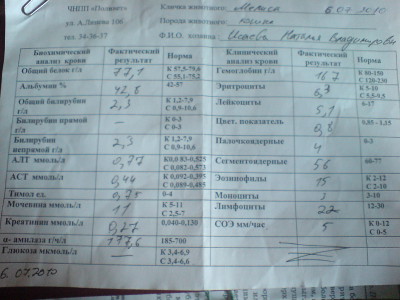 ЧНПП «Полюит» Кличка животного Мелиса 6.07.2010
ул. А.Лизюка 106 Порода животного кошка
тел. 34-36-37 Ф.И.О. хозяина Наталья Владимировна
Биохимический анализ крови Фактический результат Норма Клинический анализ крови Фактический результат Норма
Общий белок г/л 77,1 К 57,5-79,6 С 59,1-79,2 Гемоглобин г/л 167 К 80-150 С 120-230
Альбумин % 42,8 42-57 Эритроциты 6,3 К 5-10 С 5,5-8,5
Общий билирубин г/л 2,3 К 1,2-7,9 С 0,9-10,6 Лейкоциты 5,1 6-17
Билирубин прямой г/л — К 0-3 С 0-3 Цвет. показатель 0,8 0,85 - 1,15
Билирубин непрямой г/л 2,3 К 1,2-7,9 С 0,9-10,6 Палочкоядерные 4 0-3
АЛТ ммоль/л 0,77 К0,083-0,525 С 0,082-0,573 Сегментоядерные 56 60-77
АСТ ммоль/л 0,44 К 0,092-0,395 С 0,089-0,485 Эозинофилы 15 К 2-12 С 2-10
Тимол ед. 0,75 0-4 Моноциты 3 3-10
Мочевина ммоль/л 11 К 5-11 С 2,5-7 Лимфоциты 22 12-30
Креатинин ммоль/л 0,27 0,040-0,130 СОЭ мм/час 5 К 0-12 С 0-5
α- амилаза г/ч/л 177,6 185-700
Глюкоза мкмоль/л — К 3,4-6,9 С 3,4-6,6
6.07.2010